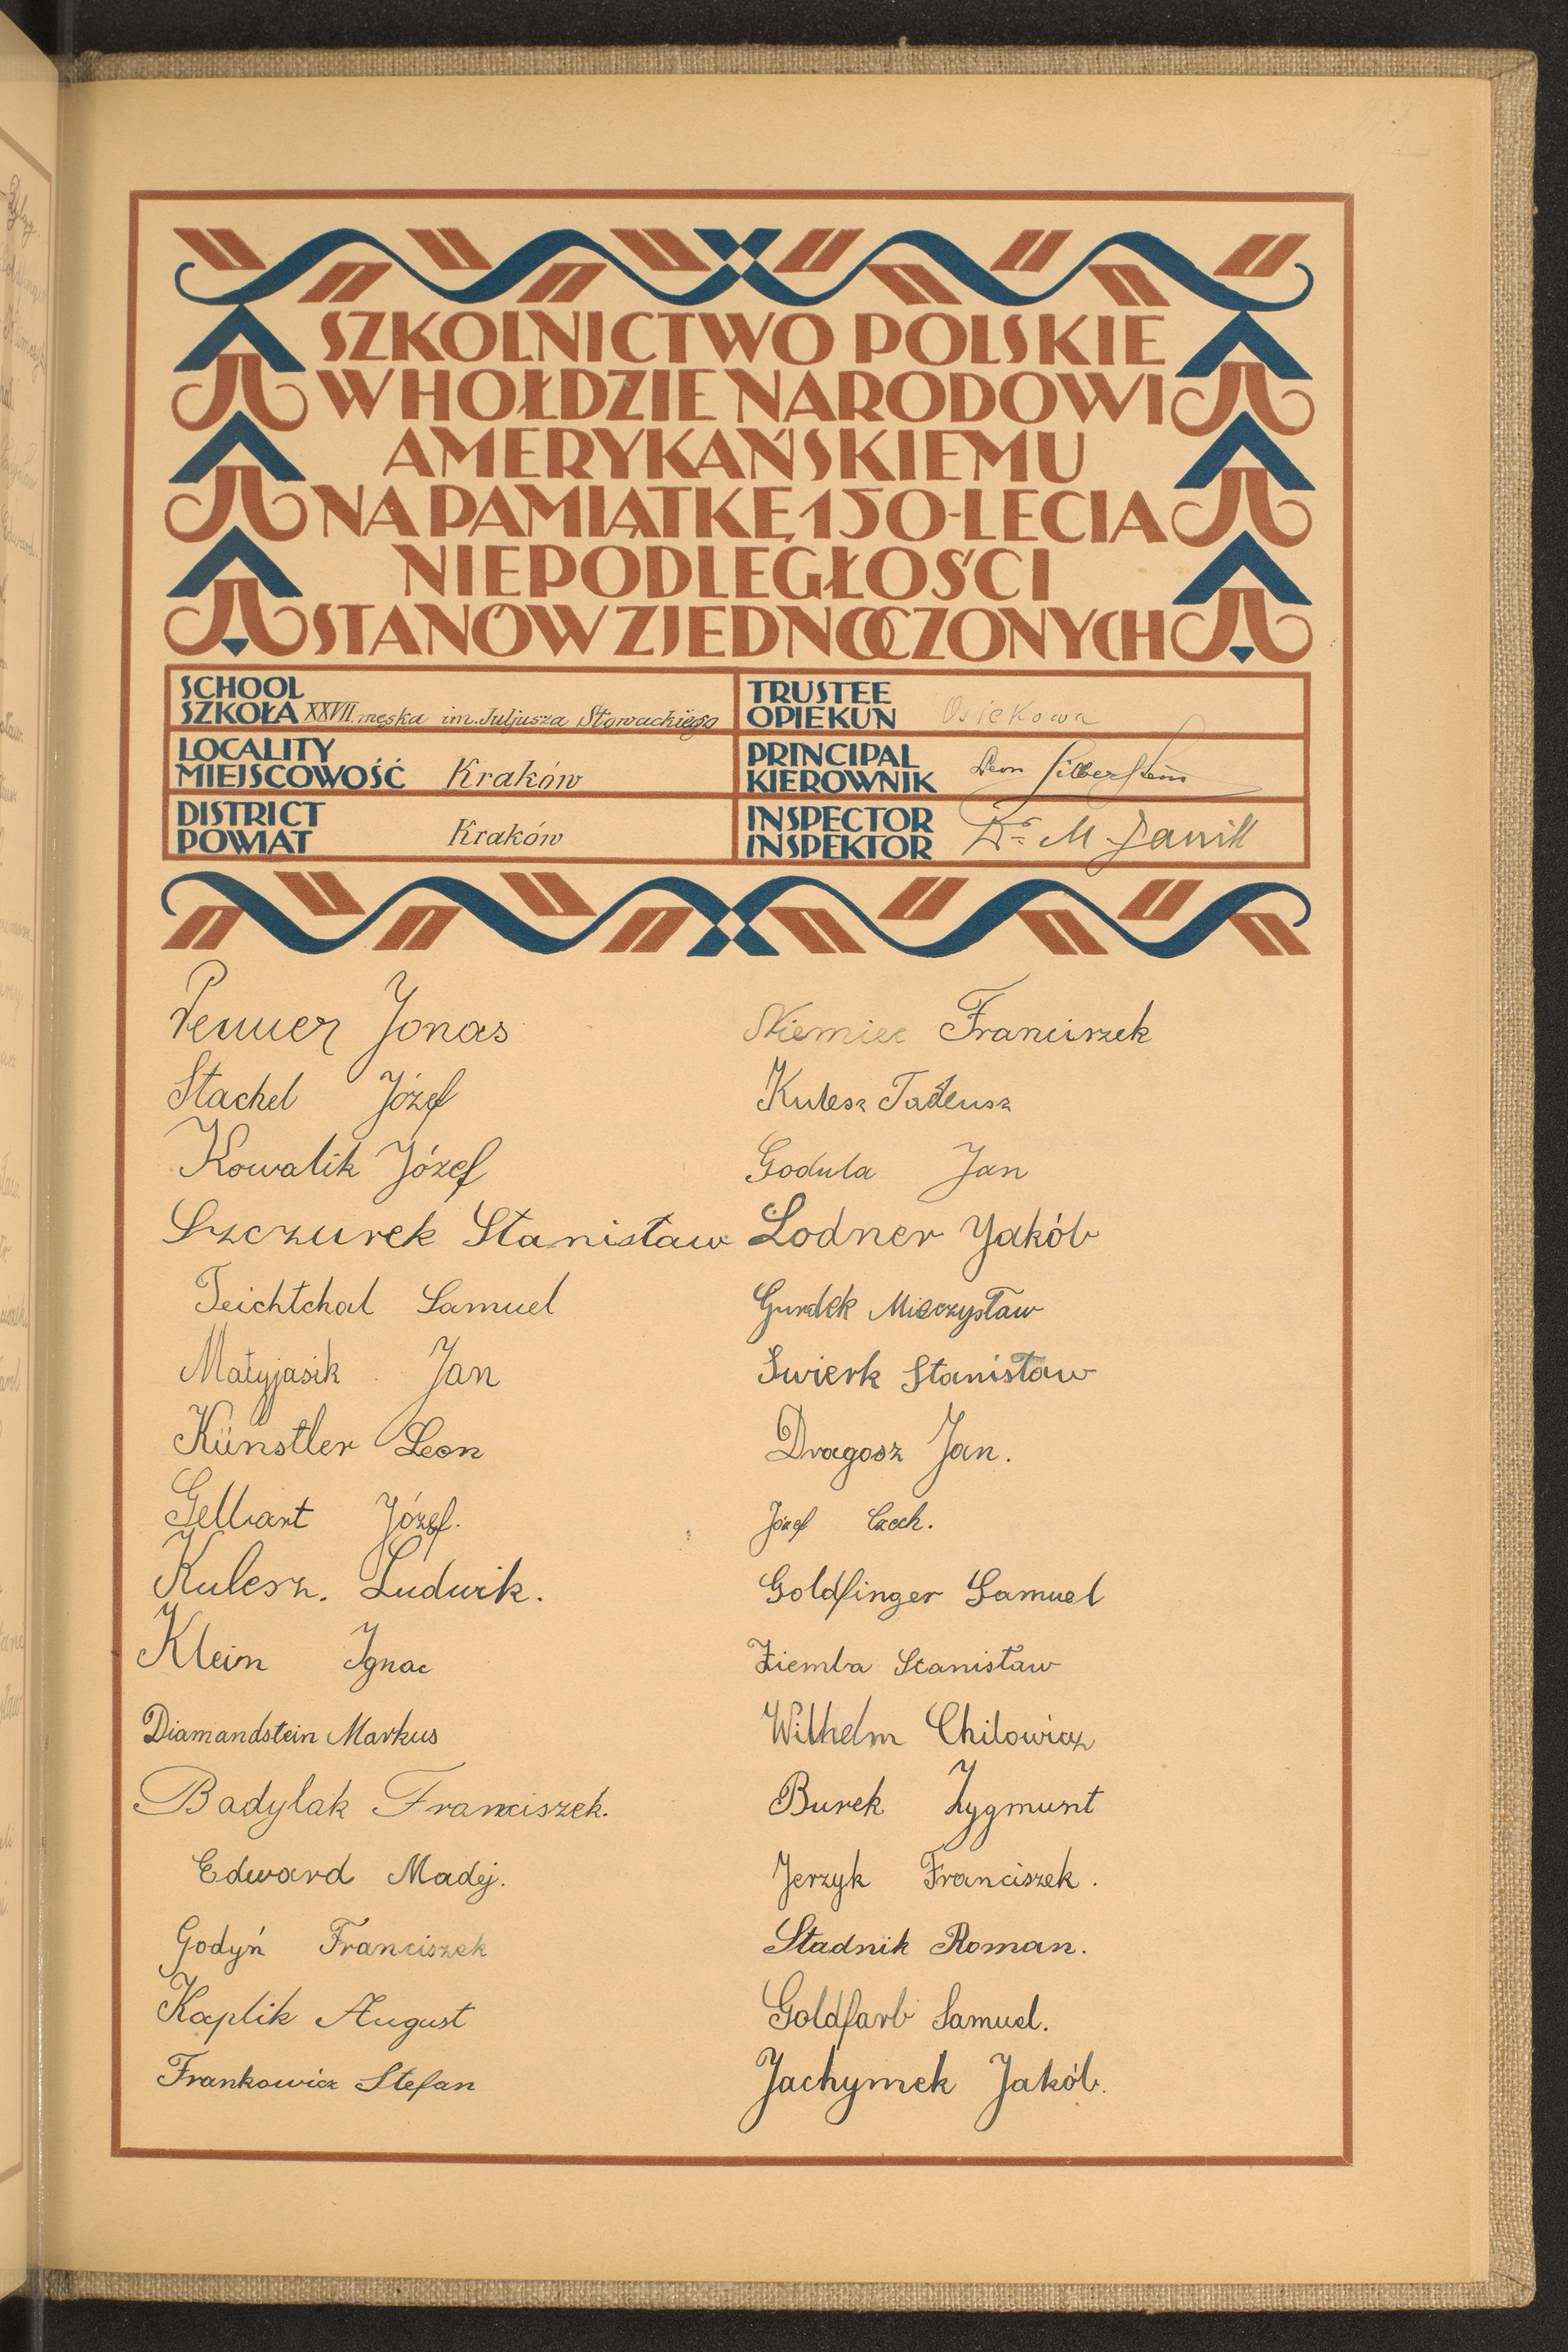 SZKOLNICTWO POLSKIE
W HOŁDZIE NARODOWI
AMERYKAŃSKIEMU
NA PAMIĄTKĘ 150-LECIA
NIEPODLEGŁOŚCI
STANÓW ZJEDNOCZONYCH
SCHOOL
SZKOŁA XXVII męska im. Juljusza Słowackiego
TRUSTEE
OPIEKUN Osiekowa
LOCALITY
MIEJSCOWOŚĆ Kraków
PRINCIPAL
KIEROWNIK Leon Silberstein
DISTRICT
POWIAT Kraków
INSPECTOR
INSPEKTOR Dr M.
Jonas
Stachel Józef
Kowalik Józef
Szczurek Stanisław
Teichtchal Samuel
Matyjasik Jan
Künstler Leon
Gelbart Józef.
Kulesz. Ludwik.
Klein Ignac
Diamandstein Markus
Badylak Franciszek.
Edward Madej.
Godyń Franciszek
Kaplik August
Frankowicz Stefan
Niemiec Franciszek
Kulesz Tadeusz
Godula Jan
Lodner Jakób
Gurdek Mieczysław
Swierk Stanisław
Dragosz Jan.
Józef Czech.
Goldfinger Samuel
Ziemba Stanisław
Wilhelm Chilowicz
Burek Zygmunt
Jerzyk Franciszek.
Stadnik Roman.
Goldfarb Samuel.
Jachymek Jakób.